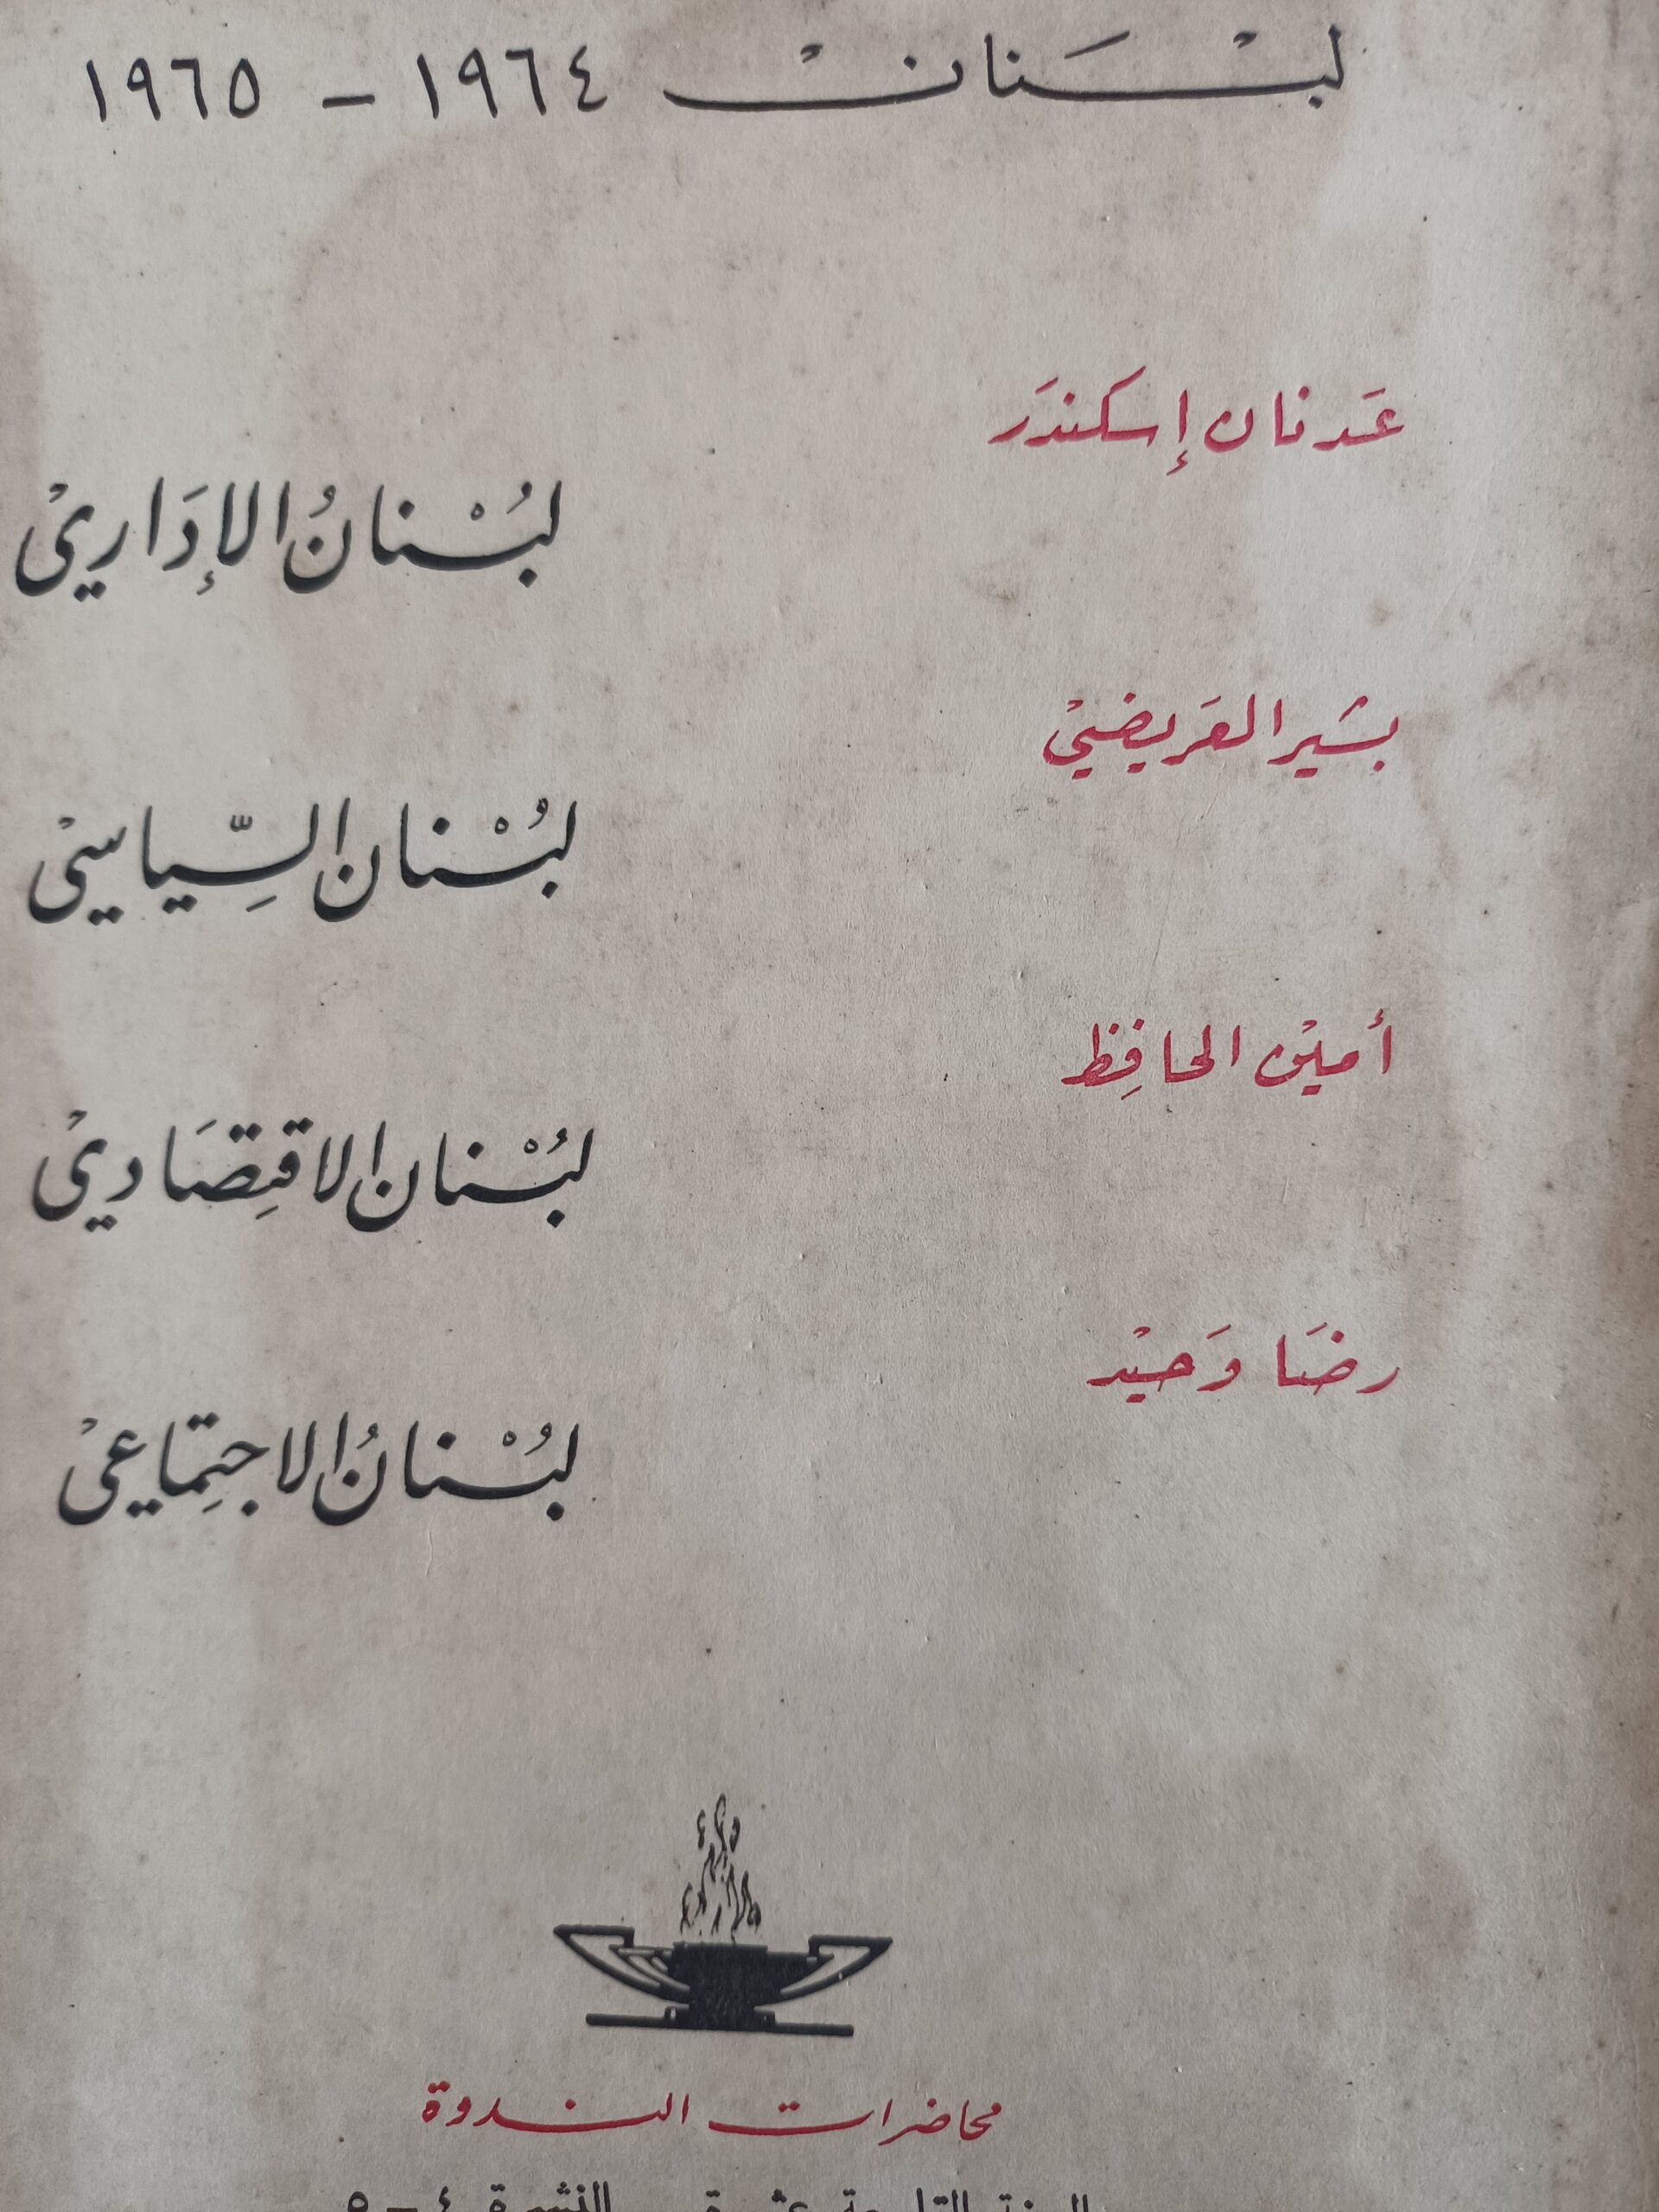 لبْنَان ١٩٦٤ – ١٩٦٥
عَدنان إسكندَر
لبُنْنانُ الإدَاري
بشَير العَريضي
لبُنْنان السِّياسي
أمين الحافِظ
لبُنْنان الاقتِصَادي
رضَا وَحيْد
لبُنْنانُ الاجتِمَاعي
محاضرات الندوة
السنة التاسعة عشرة – النشرة ٤ – ٥